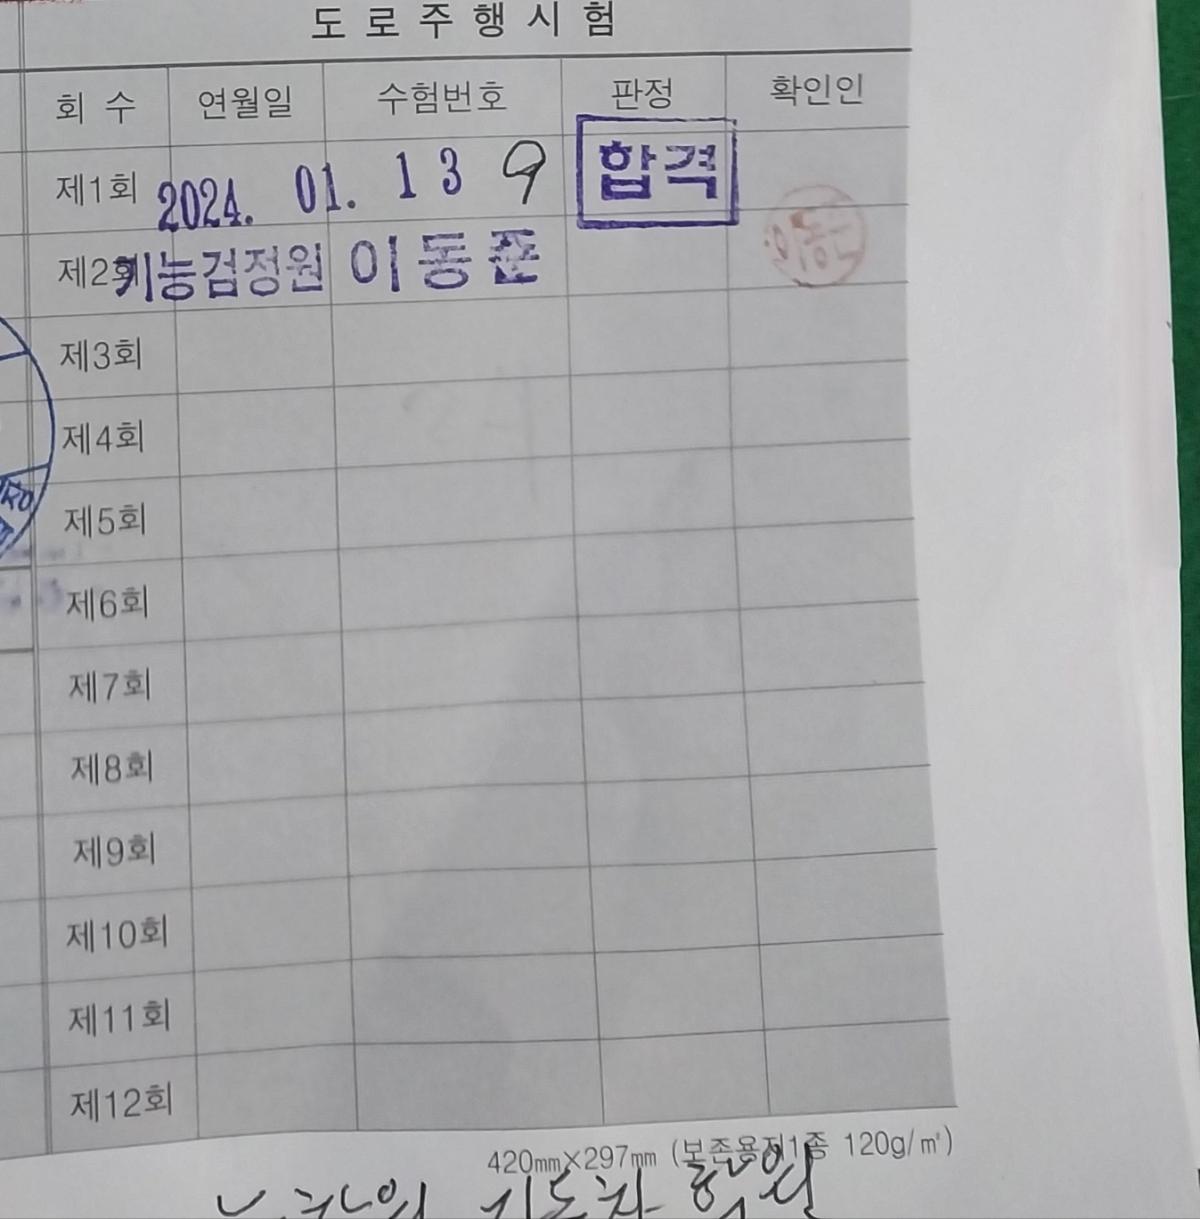 도로주행시험
회 수 연월일 수험번호 판정 확인인
제1회 2024. 01. 13 9 합격
제2회 기능검정원 이동준
제3회
제4회
제5회
제6회
제7회
제8회
제9회
제10회
제11회
제12회
420㎜×297㎜ (보존용지1종 120g/㎡)